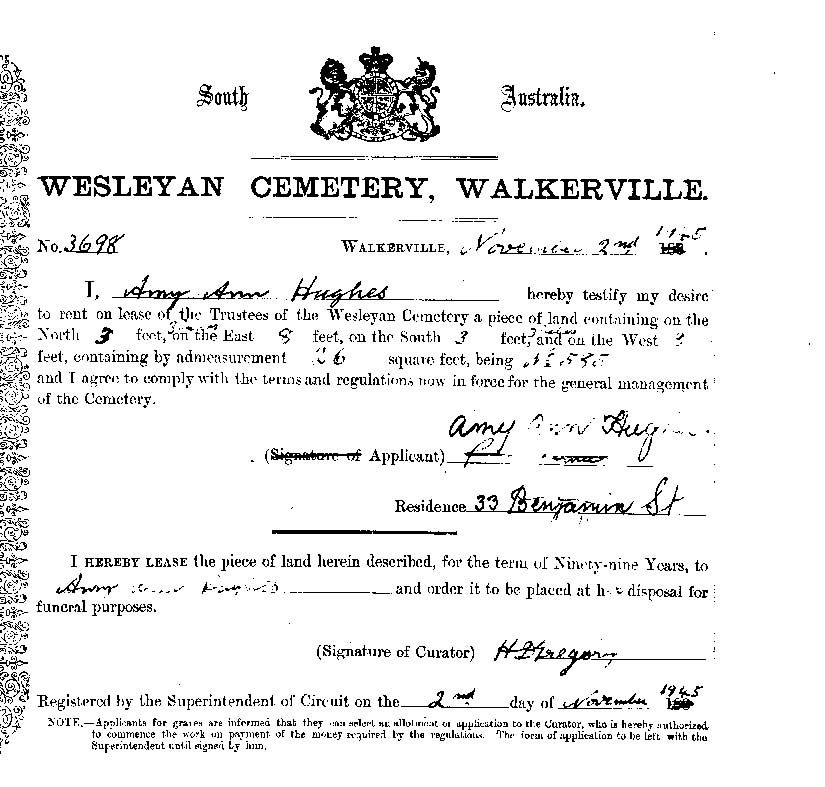 South Australia.
WESLEYAN CEMETERY, WALKERVILLE.
No. 3698 WALKERVILLE, November 2nd 1945.
I, Amy Ann Hughes hereby testify my desire
to rent on lease of the Trustees of the Wesleyan Cemetery a piece of land containing on the
North 3 feet, on the East 8 feet, on the South 3 feet, and on the West
feet, containing by admeasurement square feet, being
and I agree to comply with the terms and regulations now in force for the general management
of the Cemetery.
Amy Ann Hughes
(Signature of Applicant)
Residence 33 Benjamin St
I HEREBY LEASE the piece of land herein described, for the term of Ninety-nine Years, to
Amy Ann Hughes and order it to be placed at disposal for
funeral purposes.
(Signature of Curator) H Gregory
Registered by the Superintendent of Circuit on the 2nd day of November 1945
NOTE.—Applicants for graves are informed that they can select an allotment on application to the Curator, who is hereby authorized
to commence the work on payment of the money required by the regulations. The form of application to be left with the
Superintendent until signed by him.